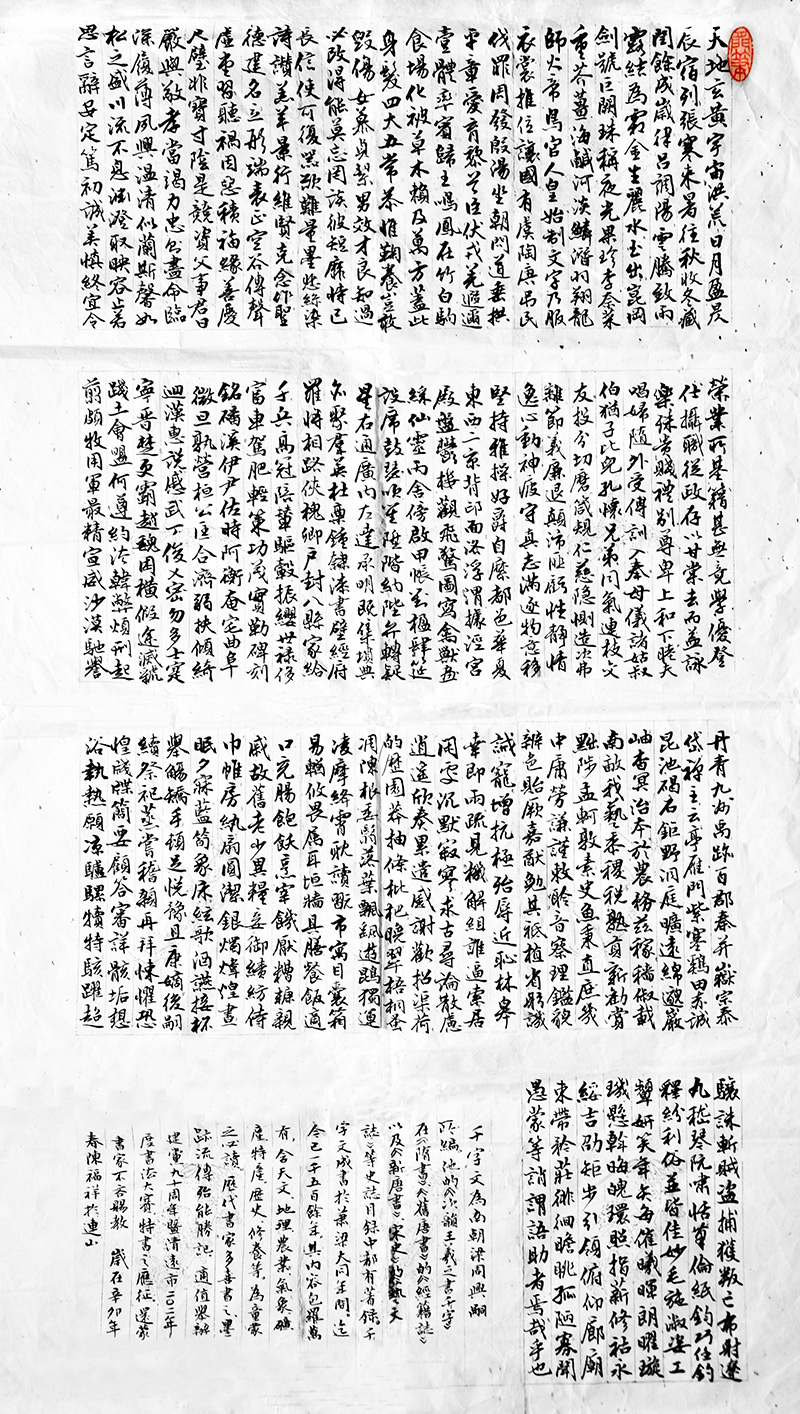 天地玄黄宇宙洪荒日月盈昃
辰宿列張寒来暑往秋收冬藏
閏餘成歲律呂調陽雲騰致雨
露結為霜金生麗水玉出崑岡
劍號巨闕珠稱夜光果珍李奈菜
重芥薑海鹹河淡鱗潛羽翔龍
師火帝鳥官人皇始制文字乃服
衣裳推位讓國有虞陶唐弔民
伐罪周發殷湯坐朝問道垂拱
平章愛育黎首臣伏戎羌遐邇
壹體率賓歸王鳴鳳在竹白駒
食場化被草木賴及萬方蓋此
身髮四大五常恭惟鞠養豈敢
毀傷女慕貞絜男效才良知過
必改得能莫忘罔談彼短靡恃己
長信使可復器欲難量墨悲絲染
詩讚羔羊景行維賢克念作聖
德建名立形端表正空谷傳聲
虛堂習聽禍因惡積福緣善慶
尺璧非寶寸陰是競資父事君曰
嚴與敬孝當竭力忠則盡命臨
深履薄夙興溫清似蘭斯馨如
松之盛川流不息淵澄取映容止若
思言辭安定篤初誠美慎終宜令
榮業所基籍甚無竟學優登
仕攝職從政存以甘棠去而益詠
樂殊貴賤禮別尊卑上和下睦夫
唱婦隨外受傅訓入奉母儀諸姑叔
伯猶子比兒孔懷兄弟同氣連枝交
友投分切磨箴規仁慈隱惻造次弗
離節義廉退顛沛匪虧性靜情
逸心動神疲守真志滿逐物意移
堅持雅操好爵自縻都邑華夏
東西二京背邙面洛浮渭據涇宮
殿盤鬱樓觀飛驚圖寫禽獸畫
綵仙靈丙舍傍啟甲帳對楹肆筵
設席鼓瑟吹笙陞階納陛弁轉疑
星右通廣內左達承明既集墳典
亦聚群英杜稾鍾隸漆書壁經府
羅將相路俠槐卿戶封八縣家給
千兵高冠陪輦驅轂振纓世祿侈
富車駕肥輕策功茂實勒碑刻
銘磻溪伊尹佐時阿衡奄宅曲阜
微旦孰營桓公匡合濟弱扶傾綺
迴漢惠說感武丁俊乂密勿多士寔
寧晉楚更霸趙魏困橫假途滅虢
踐土會盟何遵約法韓弊煩刑起
翦頗牧用軍最精宣威沙漠馳譽
丹青九州禹跡百郡秦并嶽宗泰
岱禪主云亭雁門紫塞雞田赤誠
昆池碣石鉅野洞庭曠遠綿邈巖
岫杳冥治本於農務茲稼穡俶載
南畝我藝黍稷稅熟貢新勸賞
黜陟孟軻敦素史魚秉直庶幾
中庸勞謙謹敕聆音察理鑑貌
辨色貽厥嘉猷勉其祗植省躬譏
誡寵增抗極殆辱近恥林皋
幸即兩疏見機解組誰逼索居
閑處沉默寂寥求古尋論散慮
逍遙欣奏累遣慼謝歡招渠荷
的歷園莽抽條枇杷晚翠梧桐蚤
凋陳根委翳落葉飄颻遊鵾獨運
凌摩絳霄耽讀翫市寓目囊箱
易輶攸畏屬耳垣牆具膳餐飯適
口充腸飽飫烹宰飢厭糟糠親
戚故舊老少異糧妾御績紡侍
巾帷房紈扇圓潔銀燭煒煌晝
眠夕寐藍筍象床絃歌酒讌接杯
舉觴矯手頓足悅豫且康嫡後嗣
續祭祀蒸嘗稽顙再拜悚懼恐
惶牋牒簡要顧答審詳骸垢想
浴執熱願涼驢騾犢特駭躍超
驤誅斬賊盜捕獲叛亡布射遼
丸嵇琴阮嘯恬筆倫紙鈞巧任釣
釋紛利俗並皆佳妙毛施淑姿工
顰妍笑年矢每催曦暉朗曜璇
璣懸斡晦魄環照指薪修祜永
綏吉劭矩步引領俯仰廊廟
束帶矜莊徘徊瞻眺孤陋寡聞
愚蒙等誚謂語助者焉哉乎也
千字文為南朝梁周興嗣
所編他的《次韻王羲之書千字》
在《隋書》《舊唐書》的《經籍誌》
以及《新唐書》《宋史》的《藝文
誌》等史誌目録中都有著録千
字文成書於蕭梁大同年間迄
今已一千五百餘年其内容包羅萬
有含天文地理農業氣象礦
産特産歷史修養等為童蒙
之必讀歷代書家多喜書之墨
跡流傳殆能勝記適值舉辦
建黨九十周年暨清遠市二〇一一年
度書法大賽特書之應征還蒙
書家不吝賜教 歲在辛卯年
春陳福祥於連山